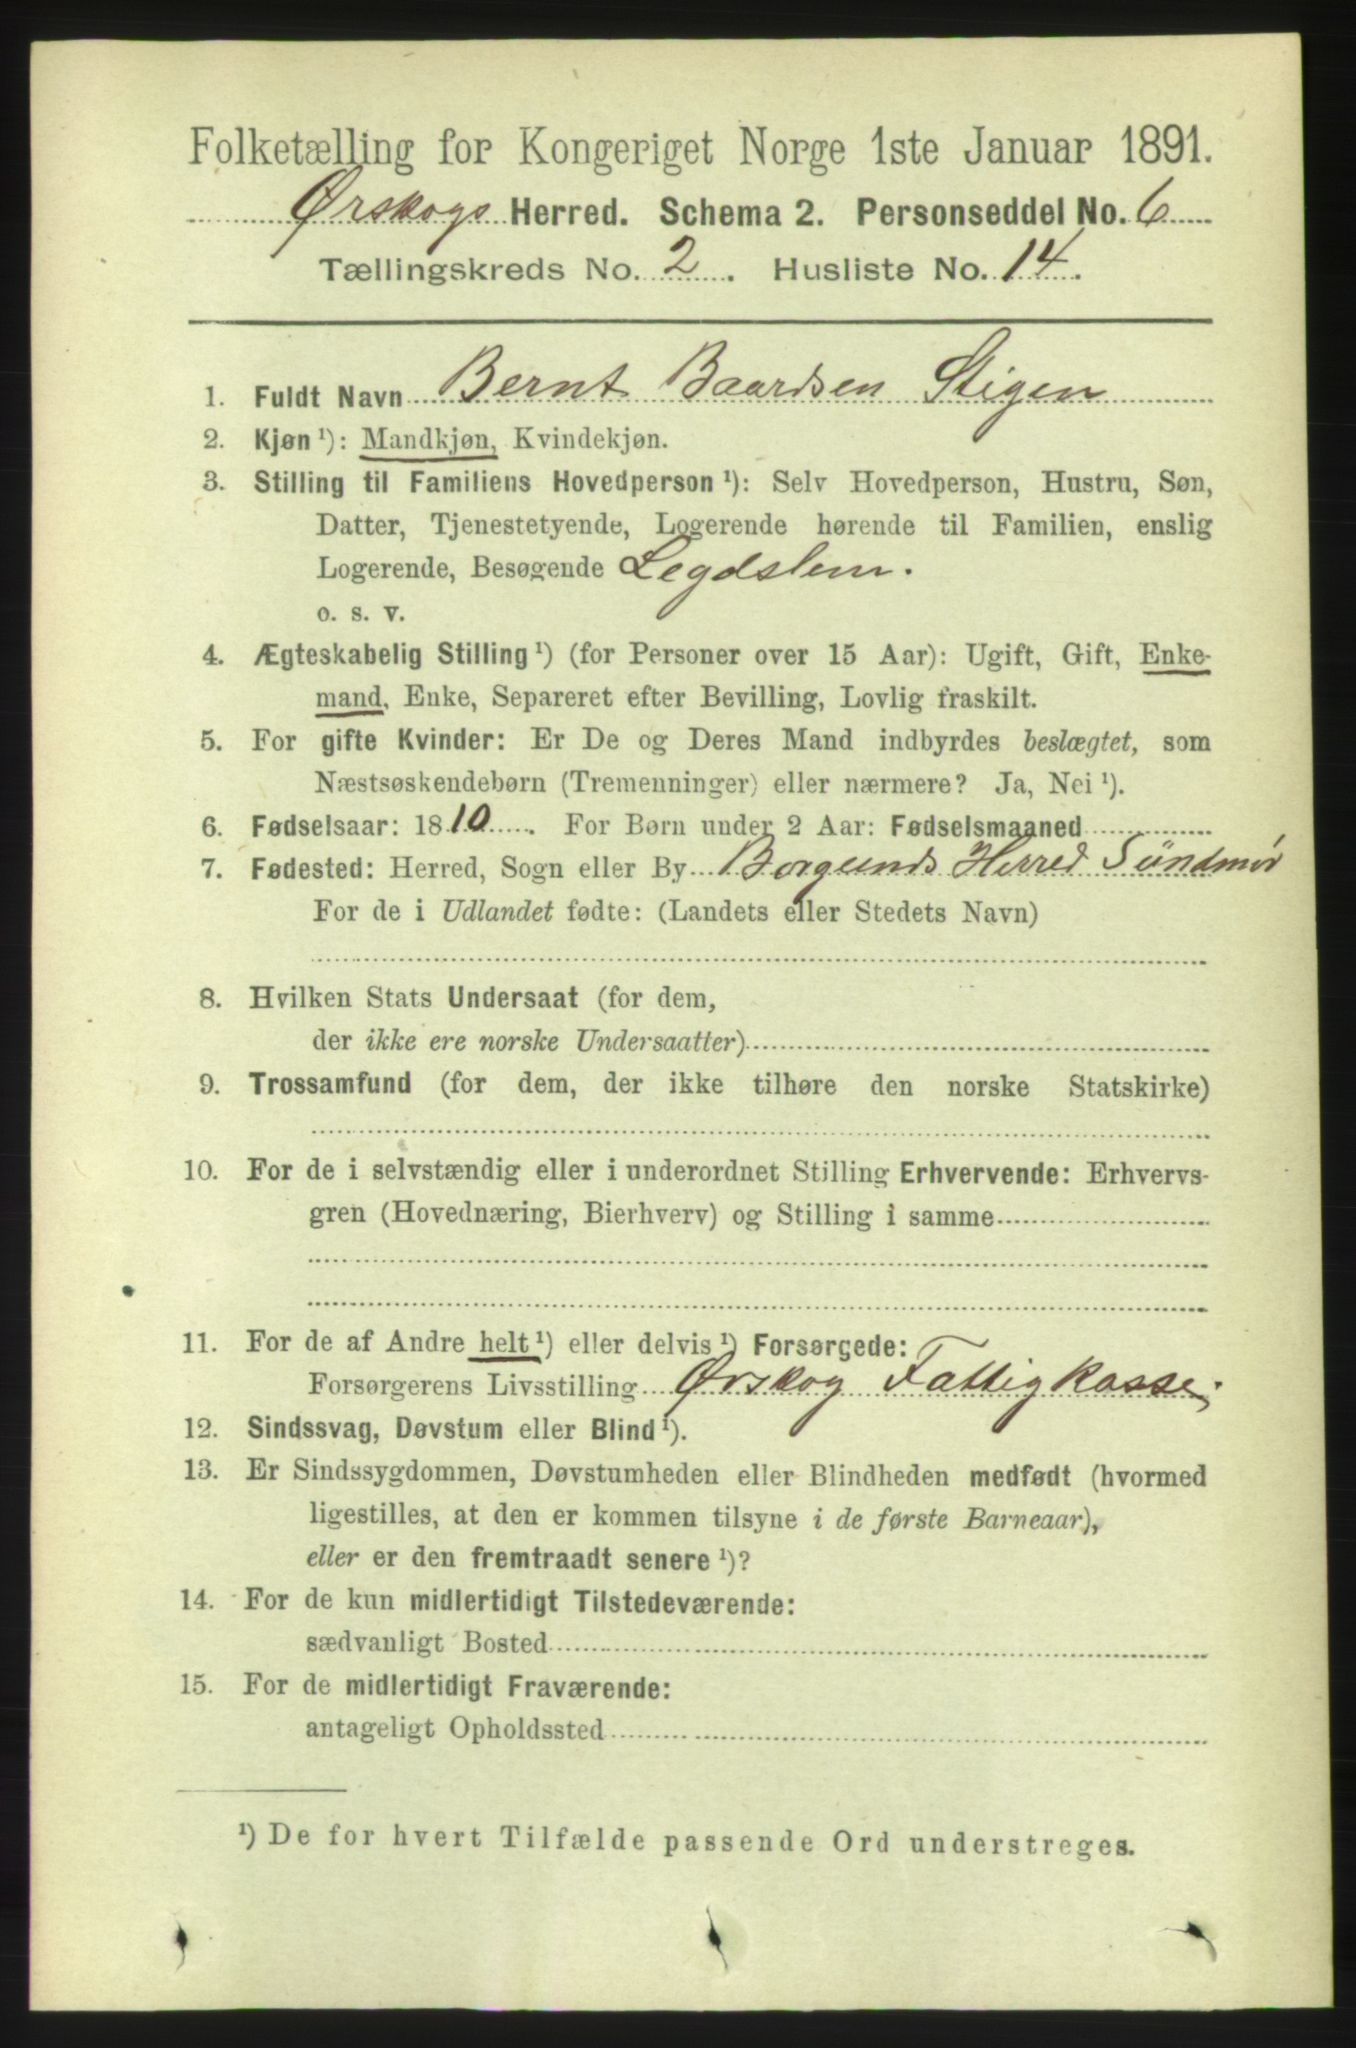 Folketælling for Kongeriget Norge 1ste Januar 1891.
Ørskogs Herred. Schema 2. Personseddel No. 6
Tællingskreds No. 2. Husliste No. 14.
1. Fuldt Navn Bernt Baardsen Stigen
2. Kjøn ¹): Mandkjøn, Kvindekjøn.
3. Stilling til Familiens Hovedperson ¹): Selv Hovedperson, Hustru, Søn,
Datter, Tjenestetyende, Logerende hørende til Familien, enslig
Logerende, Besøgende Legdslem.
o. s. v.
4. Ægteskabelig Stilling ¹) (for Personer over 15 Aar): Ugift, Gift, Enke-
mand, Enke, Separeret efter Bevilling, Lovlig fraskilt.
5. For gifte Kvinder: Er De og Deres Mand indbyrdes beslægtet, som
Næstsøskendebørn (Tremenninger) eller nærmere? Ja, Nei ¹).
6. Fødselsaar: 1810. For Børn under 2 Aar: Fødselsmaaned
7. Fødested: Herred, Sogn eller By Borgunds Herred Sündmør
For de i Udlandet fødte: (Landets eller Stedets Navn)
8. Hvilken Stats Undersaat (for dem,
der ikke ere norske Undersaatter)
9. Trossamfund (for dem, der ikke tilhøre den norske Statskirke)
10. For de i selvstændig eller i underordnet Stilling Erhvervende: Erhvervs-
gren (Hovednæring, Bierhverv) og Stilling i samme
11. For de af Andre helt ¹) eller delvis ¹) Forsørgede:
Forsørgerens Livsstilling Ørskog Fattigkasse.
12. Sindssvag, Døvstum eller Blind ¹).
13. Er Sindssygdommen, Døvstumheden eller Blindheden medfødt (hvormed
ligestilles, at den er kommen tilsyne i de første Barneaar),
eller er den fremtraadt senere ¹)?
14. For de kun midlertidigt Tilstedeværende:
sædvanligt Bosted
15. For de midlertidigt Fraværende:
antageligt Opholdssted
¹) De for hvert Tilfælde passende Ord understreges.